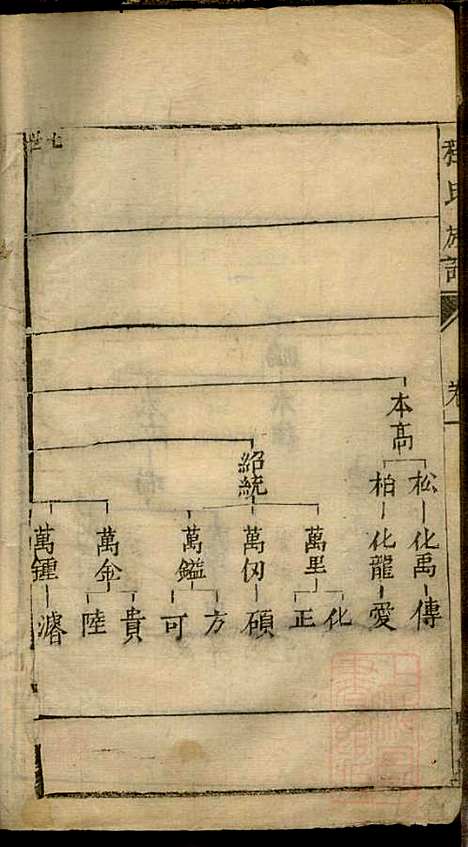 程氏族譜
卷一
七世
本高
松 化禹 傳
柏 化龍 愛
紹統
萬里
化
正
萬仞 碩
萬鎰
方
可
萬金
貴
陸
萬鍾 濬